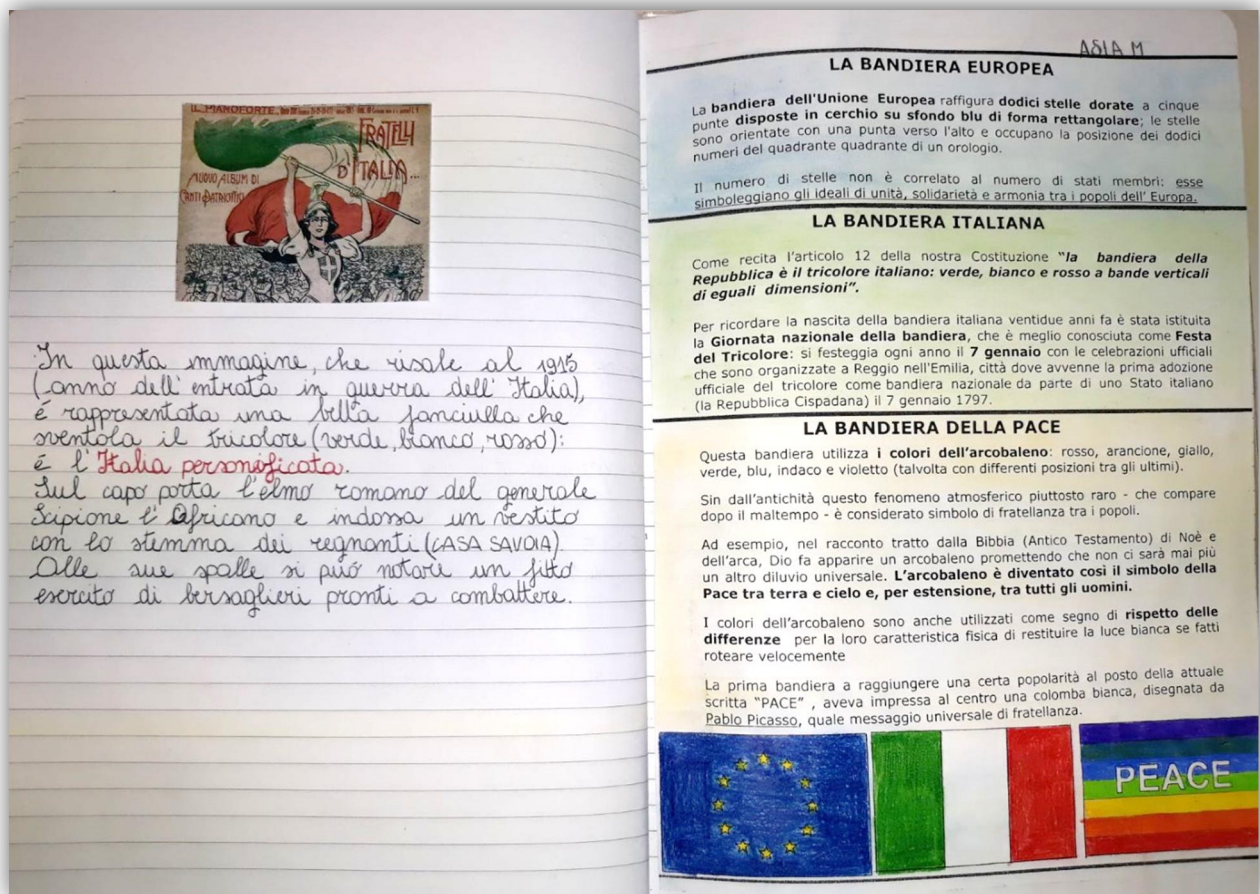 IL PIANOFORTE
FRATELLI
D'ITALIA...
NUOVO ALBUM DI
CANTI PATRIOTTICI
In questa immagine, che risale al 1915
(anno dell'entrata in guerra dell'Italia),
é rappresentata una bella fanciulla che
sventola il tricolore (verde, bianco, rosso):
é l'Italia personificata.
Sul capo porta l'elmo romano del generale
Scipione l'Africano e indossa un vestito
con lo stemma dei regnanti (CASA SAVOIA).
Alle sue spalle si puó notare un fitto
esercito di bersaglieri pronti a combattere.
ASIA M
LA BANDIERA EUROPEA
La bandiera dell'Unione Europea raffigura dodici stelle dorate a cinque
punte disposte in cerchio su sfondo blu di forma rettangolare; le stelle
sono orientate con una punta verso l'alto e occupano la posizione dei dodici
numeri del quadrante quadrante di un orologio.
Il numero di stelle non è correlato al numero di stati membri: esse
simboleggiano gli ideali di unità, solidarietà e armonia tra i popoli dell' Europa.
LA BANDIERA ITALIANA
Come recita l'articolo 12 della nostra Costituzione "la bandiera della
Repubblica è il tricolore italiano: verde, bianco e rosso a bande verticali
di eguali dimensioni".
Per ricordare la nascita della bandiera italiana ventidue anni fa è stata istituita
la Giornata nazionale della bandiera, che è meglio conosciuta come Festa
del Tricolore: si festeggia ogni anno il 7 gennaio con le celebrazioni ufficiali
che sono organizzate a Reggio nell'Emilia, città dove avvenne la prima adozione
ufficiale del tricolore come bandiera nazionale da parte di uno Stato italiano
(la Repubblica Cispadana) il 7 gennaio 1797.
LA BANDIERA DELLA PACE
Questa bandiera utilizza i colori dell'arcobaleno: rosso, arancione, giallo,
verde, blu, indaco e violetto (talvolta con differenti posizioni tra gli ultimi).
Sin dall'antichità questo fenomeno atmosferico piuttosto raro - che compare
dopo il maltempo - è considerato simbolo di fratellanza tra i popoli.
Ad esempio, nel racconto tratto dalla Bibbia (Antico Testamento) di Noè e
dell'arca, Dio fa apparire un arcobaleno promettendo che non ci sarà mai più
un altro diluvio universale. L'arcobaleno è diventato così il simbolo della
Pace tra terra e cielo e, per estensione, tra tutti gli uomini.
I colori dell'arcobaleno sono anche utilizzati come segno di rispetto delle
differenze per la loro caratteristica fisica di restituire la luce bianca se fatti
roteare velocemente
La prima bandiera a raggiungere una certa popolarità al posto della attuale
scritta "PACE" , aveva impressa al centro una colomba bianca, disegnata da
Pablo Picasso, quale messaggio universale di fratellanza.
PEACE